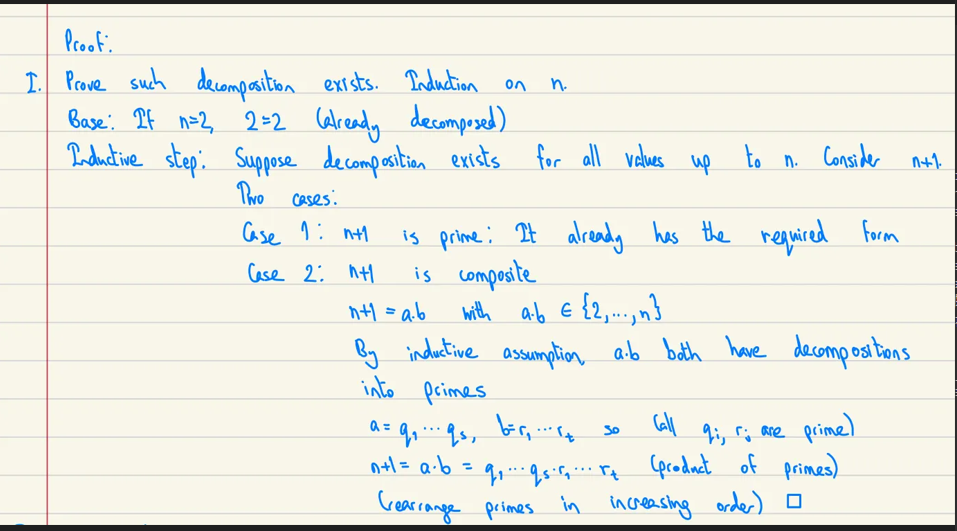 Proof:
I. Prove such decomposition exists. Induction on n.
Base: If n=2, 2=2 (already decomposed)
Inductive step: Suppose decomposition exists for all values up to n. Consider n+1.
Two cases:
Case 1: n+1 is prime: It already has the required form
Case 2: n+1 is composite
n+1 = a·b with a·b ∈ {2,...,n}
By inductive assumption, a·b both have decompositions
into primes
a = q₁ ⋯ qₛ, b = r₁ ⋯ rₜ so (all qᵢ, rⱼ are prime)
n+1 = a·b = q₁ ⋯ qₛ·r₁ ⋯ rₜ (product of primes)
(rearrange primes in increasing order) □